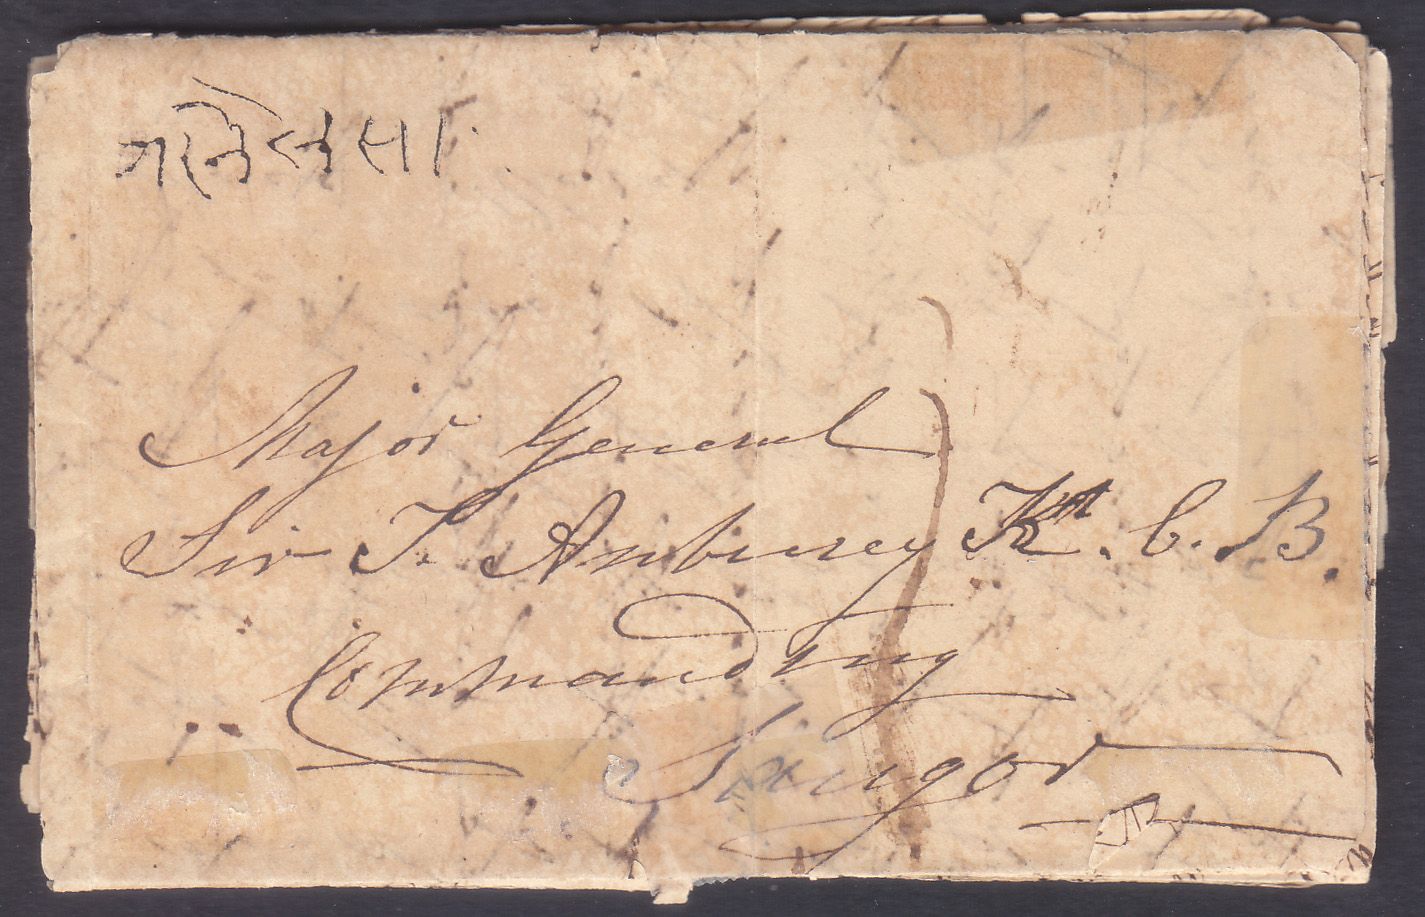 Major General
Sir T. Anburey Kt. C. B.
Commanding
Saugor